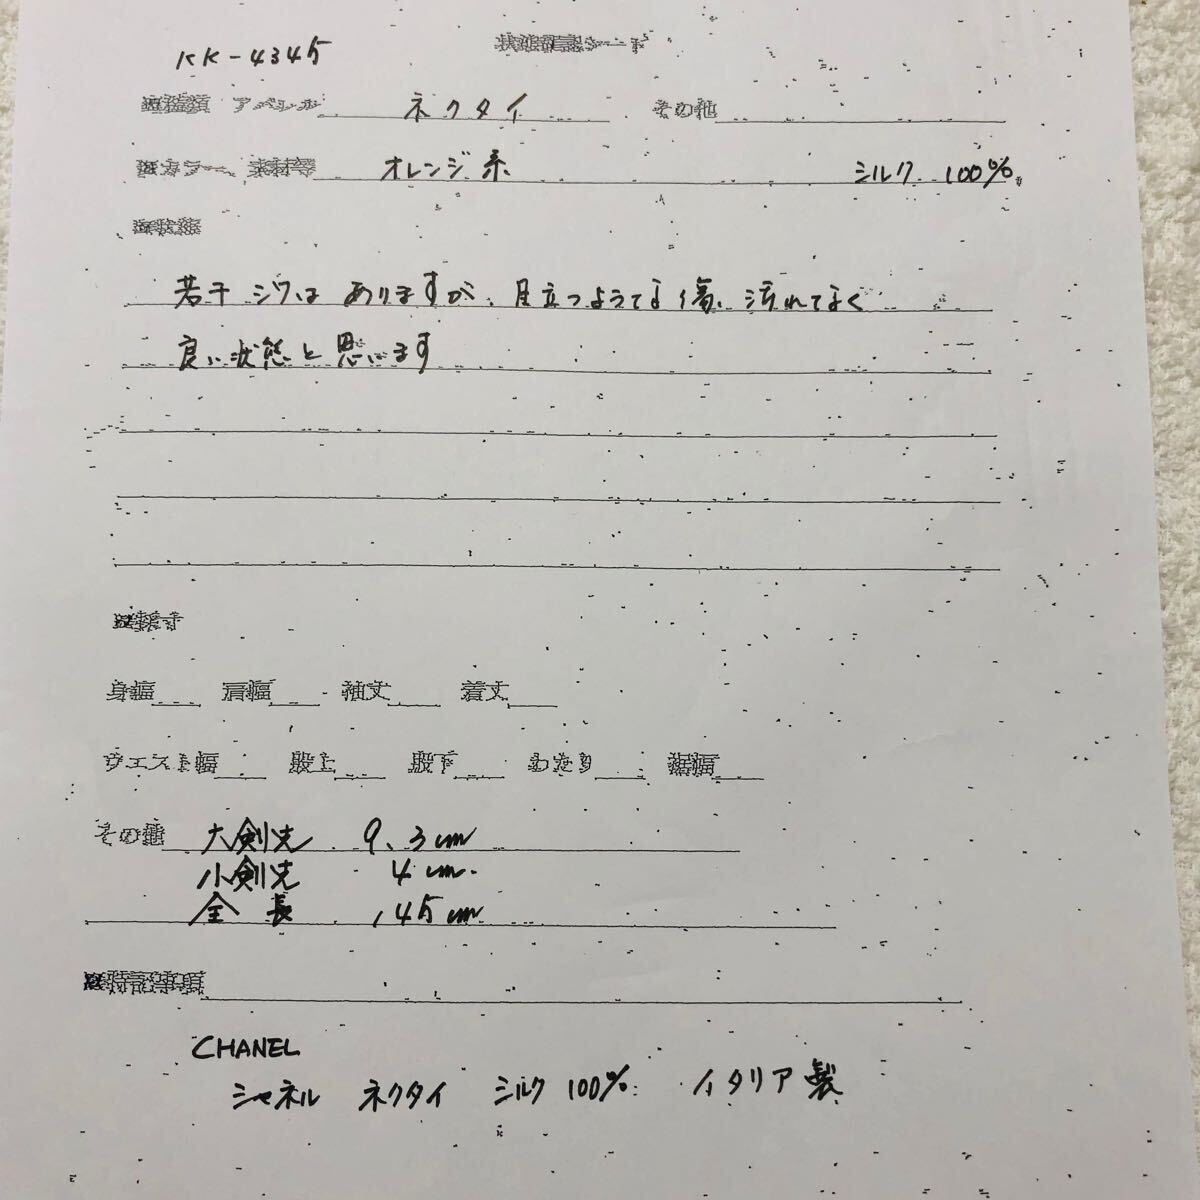 KK-4345
状態確認シート
アパレル ネクタイ その他
カラー、素材等 オレンジ系 シルク 100%
若干シワはありますが、目立つようてな傷、汚れてなく
良い状態と思います
身幅 肩幅 袖丈 着丈
ウエスト幅 股上 股下 わたり 裾幅
その他 大剣先 9.3cm
小剣先 4cm.
全長 145cm
特記事項
CHANEL
シャネル ネクタイ シルク 100% イタリア製